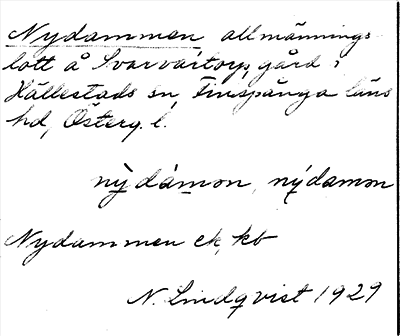 Nydammen allmännings
lott å Svarvartorps gård i
Hällestads sn, Finspånga läns
hd, Österg. l.
nỳdámən, nýdamən
Nydammen ek, kb
N. Lindqvist 1929